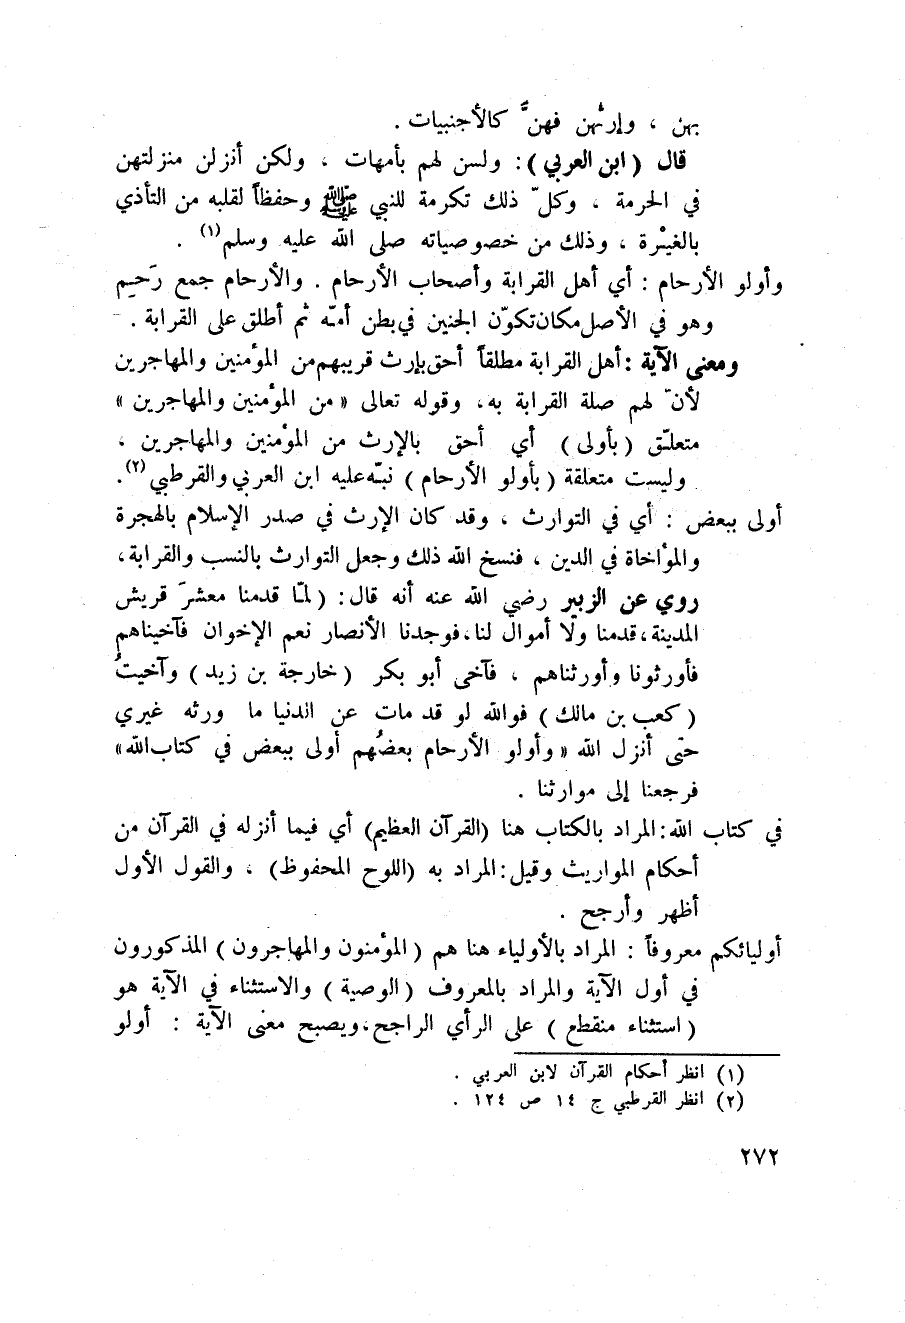 بهن ، وإرثهن فهنَّ كالأجنبيات .
قال ( ابن العربي ) : ولسن لهم بأمهات ، ولكن أنزلن منزلتهن
في الحرمة ، وكلّ ذلك تكرمة للنبي ﷺ وحفظاً لقلبه من التأذي
بالغيْرة ، وذلك من خصوصياته صلى الله عليه وسلم(١) .
وأولو الأرحام : أي أهل القرابة وأصحاب الأرحام . والأرحام جمع رَحيم
وهو في الأصل مكان تكوّن الجنين في بطن أمّه ثم أطلق على القرابة .
ومعنى الآية : أهل القرابة مطلقاً أحق بإرث قريبهم من المؤمنين والمهاجرين
لأنّ لهم صلة القرابة به، وقوله تعالى « من المؤمنين والمهاجرين »
متعلّق ( بأولى ) أي أحق بالإرث من المؤمنين والمهاجرين ،
وليست متعلقة ( بأولو الأرحام ) نبّه عليه ابن العربي والقرطبي(٢).
أولى ببعض : أي في التوارث ، وقد كان الإرث في صدر الإسلام بالهجرة
والمؤاخاة في الدين ، فنسخ الله ذلك وجعل التوارث بالنسب والقرابة،
روي عن الزبير رضي الله عنه أنه قال : ( لمّا قدمنا معشرَ قريش
المدينة، قدمنا ولا أموال لنا، فوجدنا الأنصار نعم الإخوان فآخيناهم
فأورثونا وأورثناهم ، فآخى أبو بكر ( خارجة بن زيد ) وآخيتُ
( كعب بن مالك ) فوالله لو قد مات عن الدنيا ما ورثه غيري
حتى أنزل الله « وأولو الأرحام بعضُهم أولى ببعض في كتاب الله »
فرجعنا إلى موارثنا .
في كتاب الله : المراد بالكتاب هنا (القرآن العظيم) أي فيما أنزله في القرآن من
أحكام المواريث وقيل : المراد به (اللوح المحفوظ) ، والقول الأول
أظهر وأرجح .
أوليائكم معروفاً : المراد بالأولياء هنا هم ( المؤمنون والمهاجرون ) المذكورون
في أول الآية والمراد بالمعروف ( الوصية ) والاستثناء في الآية هو
( استثناء منقطع ) على الرأي الراجح، ويصبح معنى الآية : أولو
(١) انظر أحكام القرآن لابن العربي .
(٢) انظر القرطبي ج ١٤ ص ١٢٤ .
٢٧٢